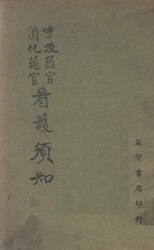 呼吸器官
消化器官
看護須知
益智書店印行